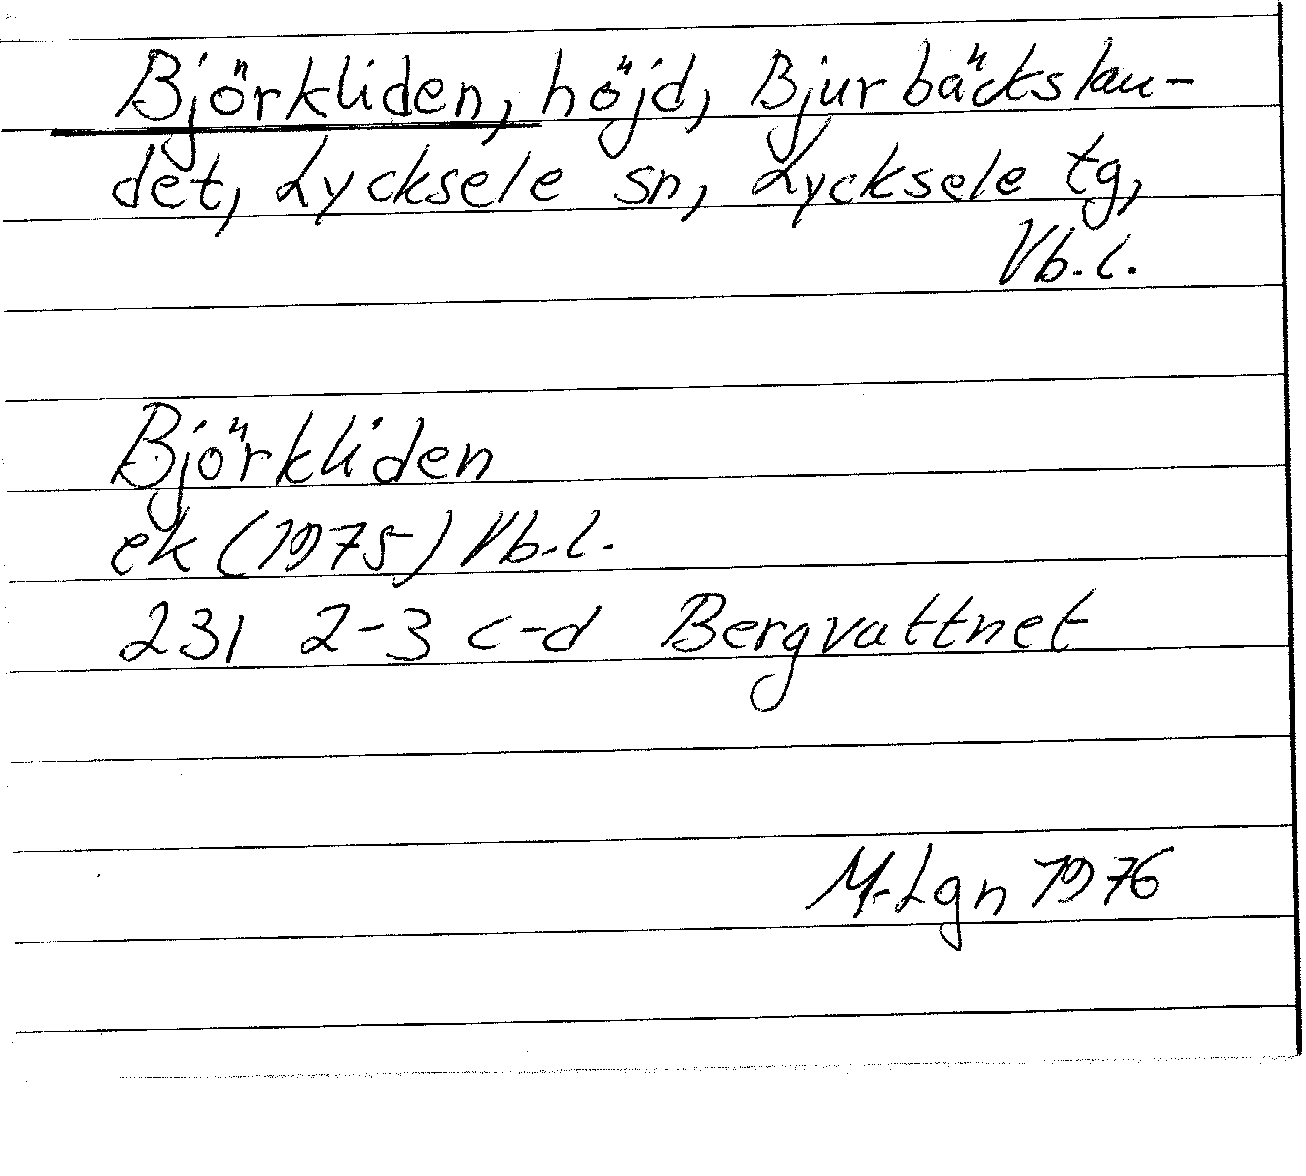 Björkliden, höjd, Bjurbäckslan-
det, Lycksele sn, Lycksele tg,
Vb.l.
Björkliden
ek (1975) Vb.l.
231 2-3 c-d Bergvattnet
M-Lgn 1976